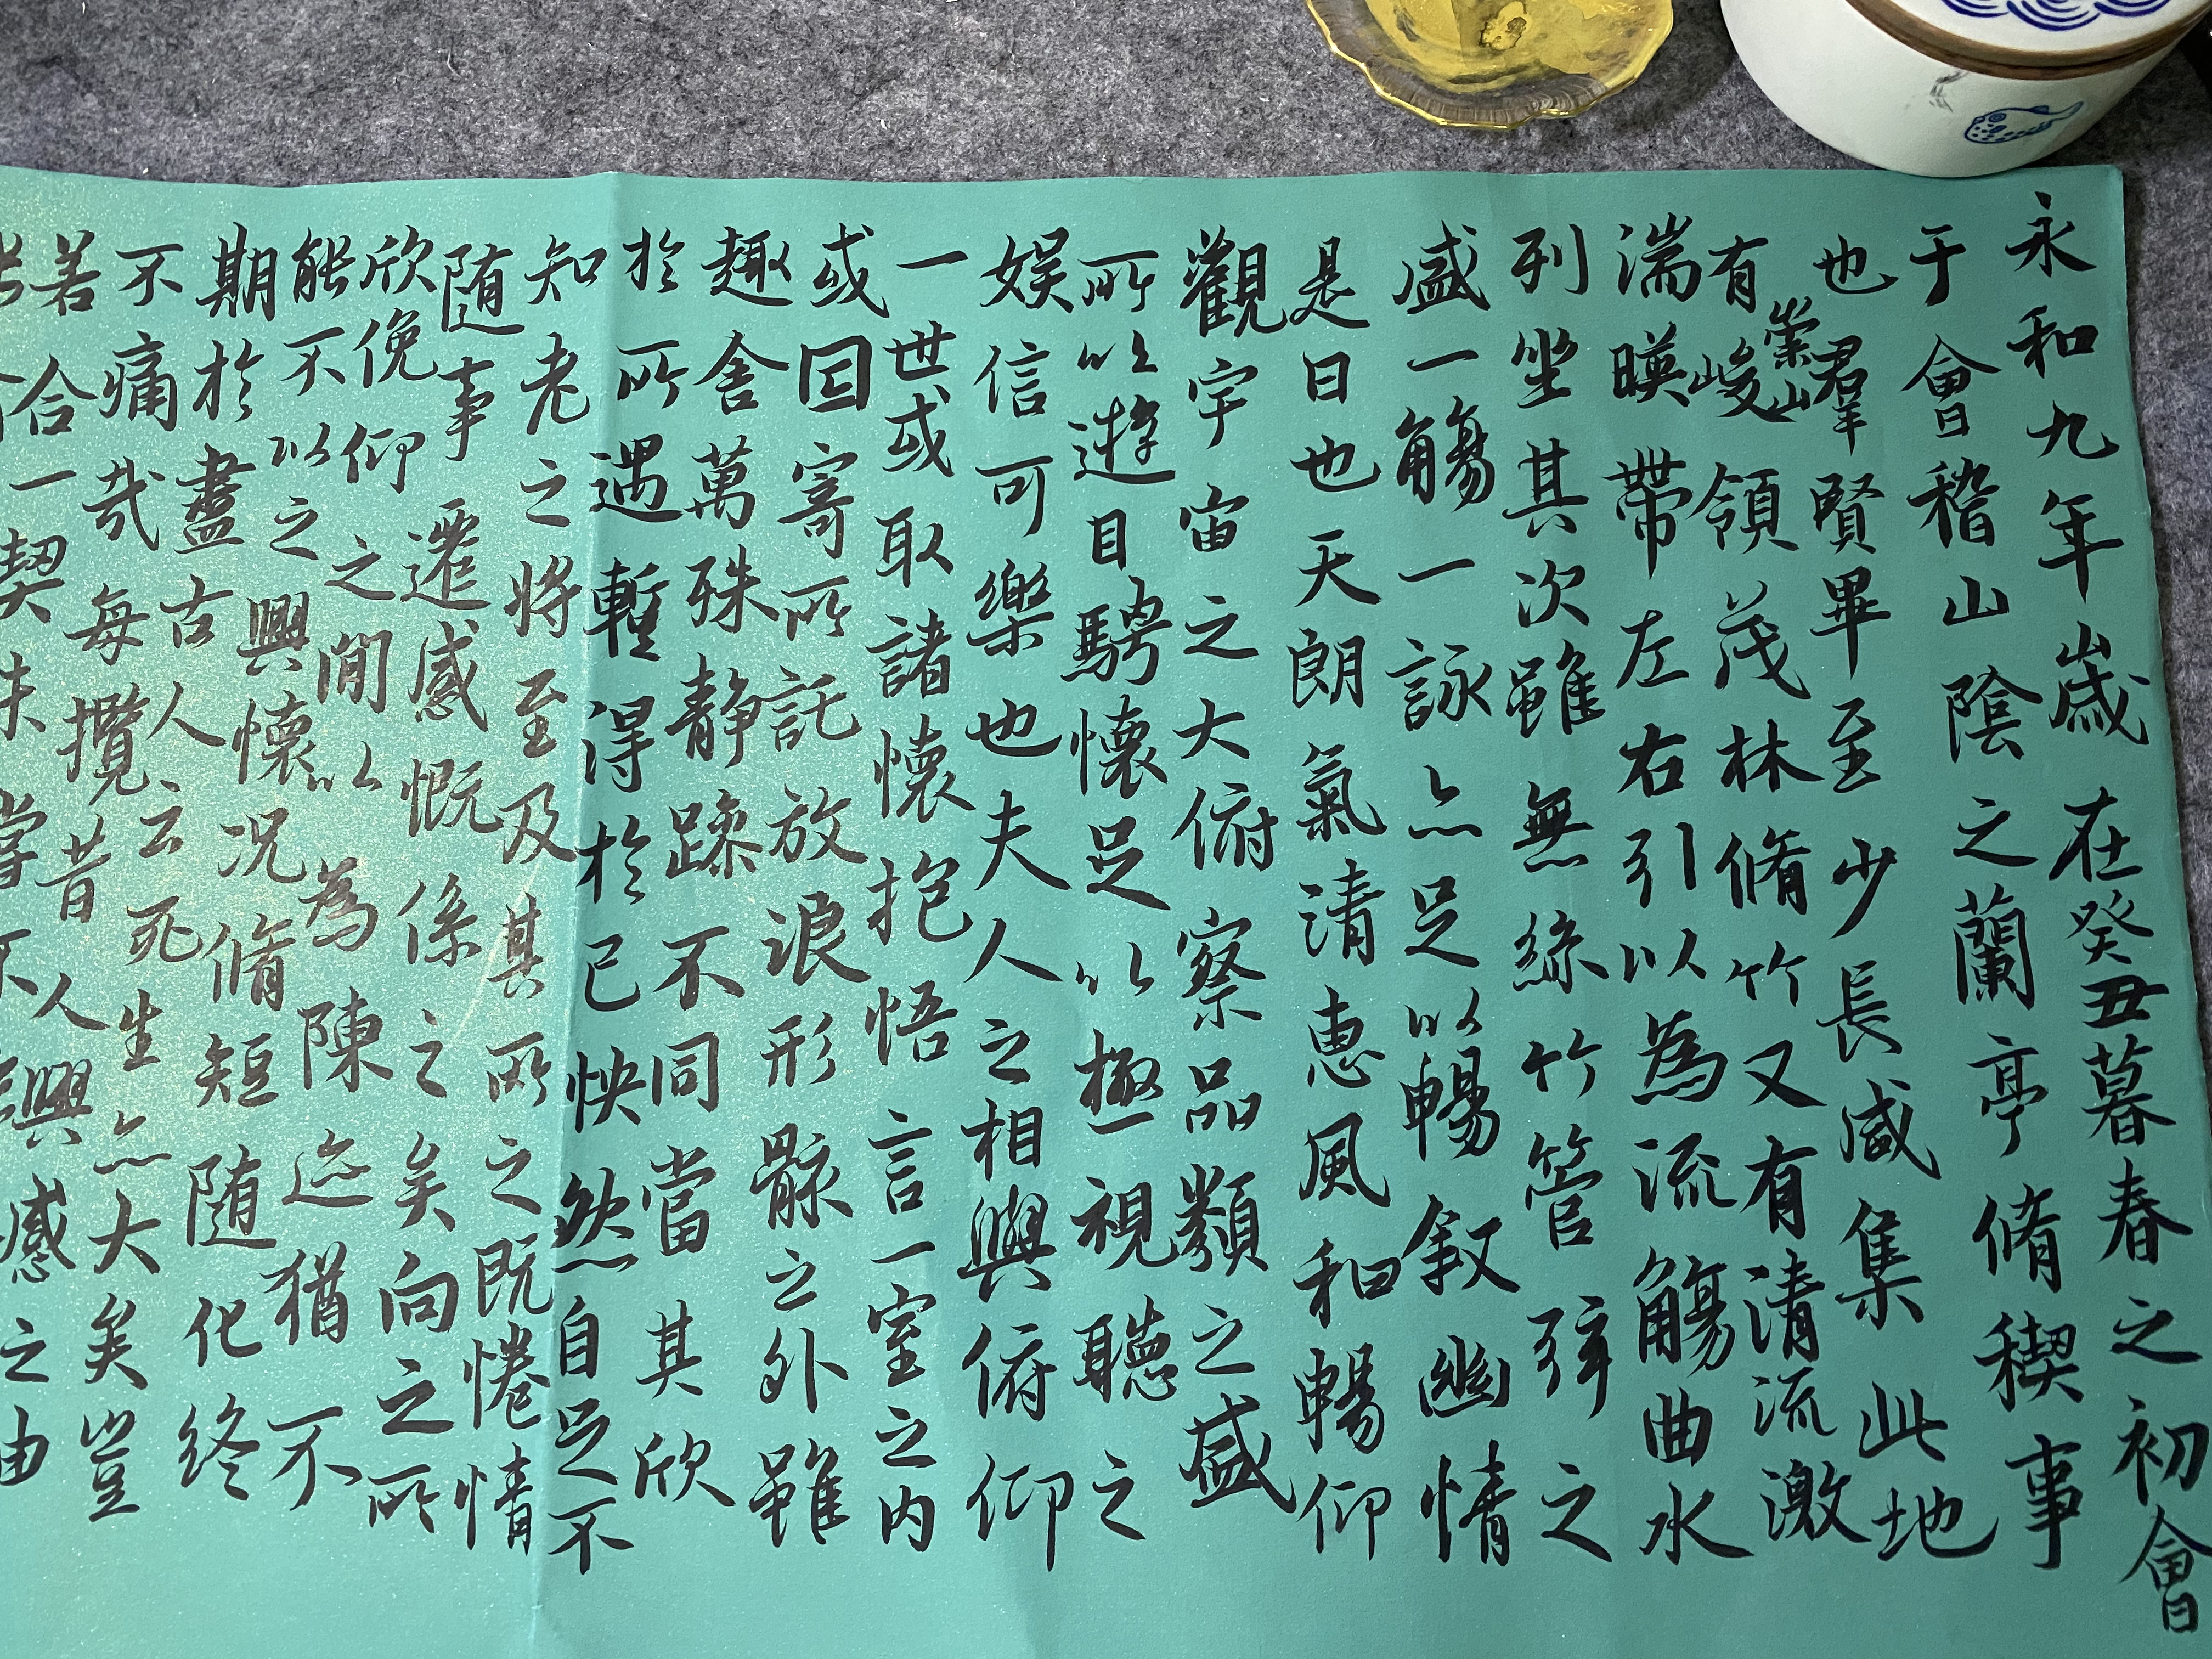 永和九年歲在癸丑暮春之初會
于會稽山陰之蘭亭脩稧事
也羣賢畢至少長咸集此地
有崇山峻領茂林脩竹又有清流激
湍暎帶左右引以為流觴曲水
列坐其次雖無絲竹管弦之
盛一觴一詠亦足以暢敘幽情
是日也天朗氣清惠風和暢仰
觀宇宙之大俯察品類之盛
所以遊目騁懷足以極視聽之
娛信可樂也夫人之相與俯仰
一世或取諸懷抱悟言一室之內
或因寄所託放浪形骸之外雖
趣舍萬殊静躁不同當其欣
於所遇暫得於己怏然自足不
知老之將至及其所之既惓情
隨事遷感慨係之矣向之所
欣俛仰之閒以為陳迹猶不
能不以之興懷况脩短隨化終
期於盡古人云死生亦大矣豈
不痛哉每攬昔人興感之由
若合一契未嘗不